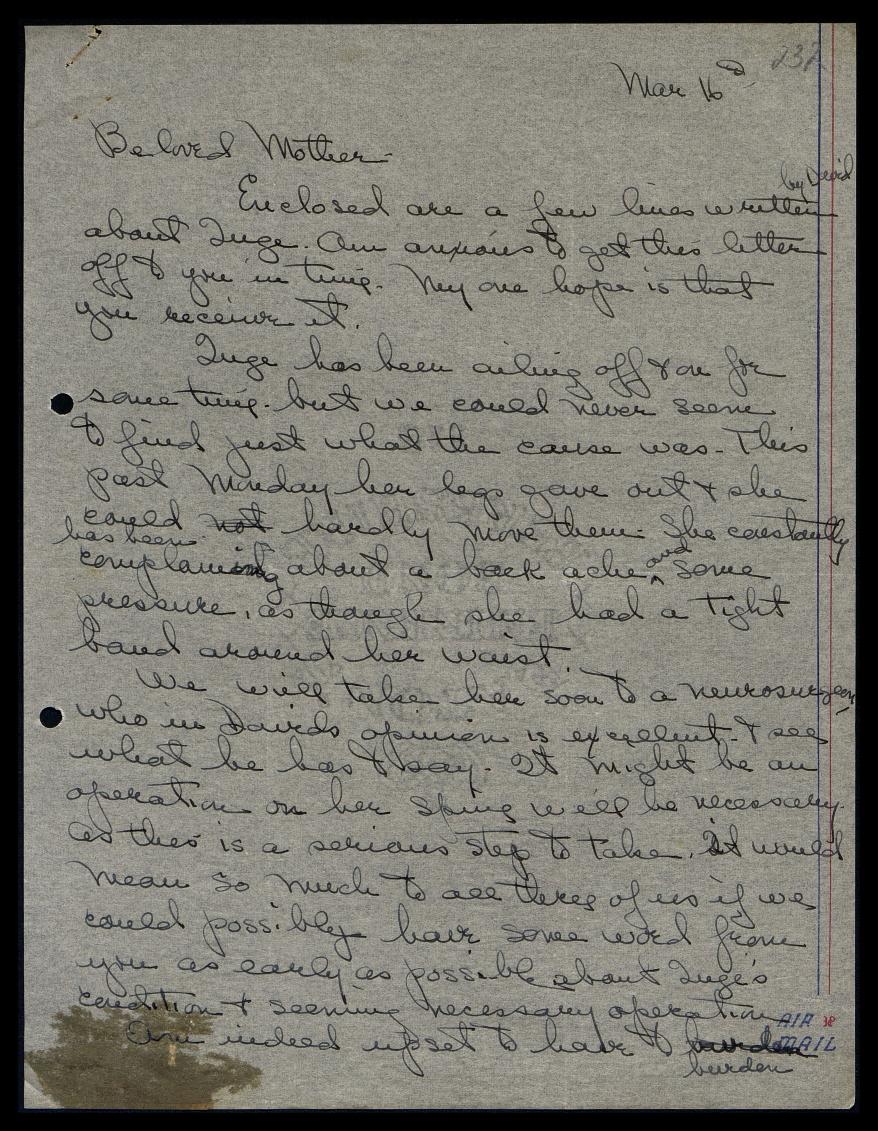 237
Mar 16th
Beloved Mother-
by David
Enclosed are a few lines written
about Inge. Am anxious to get this letter
off to you in time. My one hope is that
you receive it.
Inge has been ailing off & on for
some time - but we could never seem
to find just what the cause was - This
past Monday her legs gave out & she
could not hardly move them. She constantly
has been
complaining about a back ache and some
pressure, as though she had a tight
band around her waist.
We will take her soon to a neurosurgeon,
who in Davids opinion is excellent - & see
what he has to say. It might be an
operation on her spine will be necessary.
As this is a serious step to take, it would
mean so much to all three of us if we
could possibly have some word from
you as early as possible about Inge's
condition & seeming necessary operation
Am indeed upset to have to burden
burden
AIR 38
MAIL